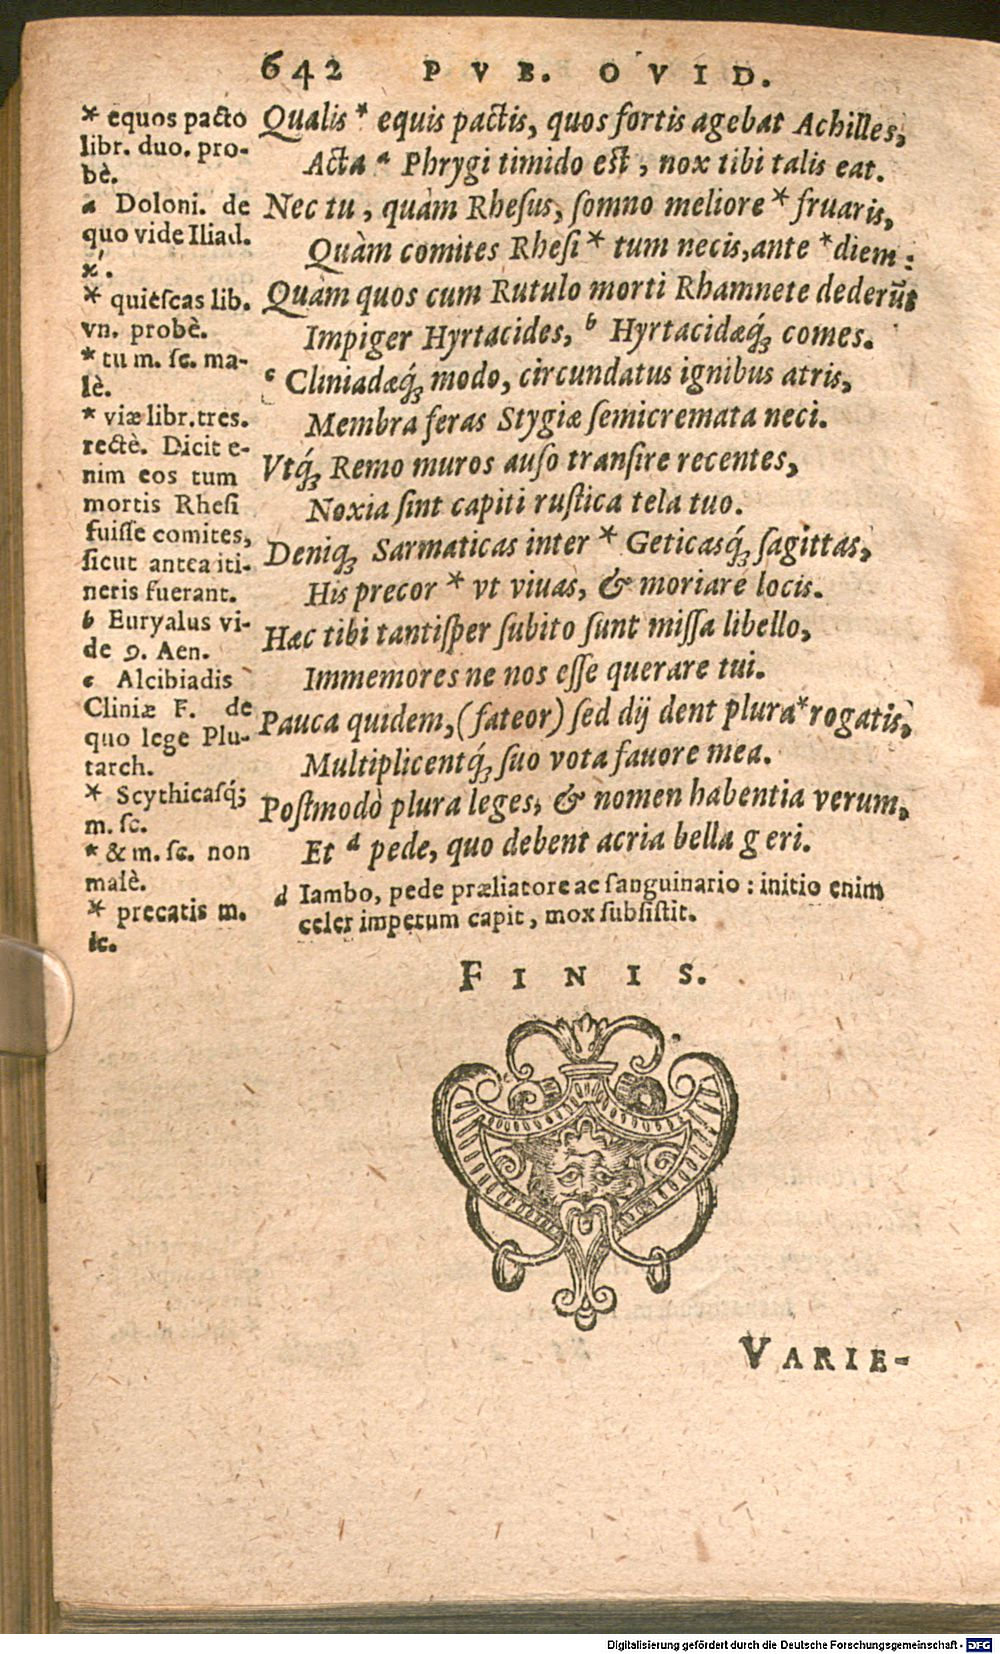 642 PVB. OVID.
* equos pacto
libr. duo. pro-
bè.
a Doloni. de
quo vide Iliad.
κ'.
* quiescas lib.
vn. probè.
* tu m. sc. ma-
lè.
* viæ libr. tres.
rectè. Dicit e-
nim eos tum
mortis Rhesi
fuisse comites,
sicut antea iti-
neris fuerant.
b Euryalus vi-
de 9. Aen.
c Alcibiadis
Cliniæ F. de
quo lege Plu-
tarch.
* Scythicasq́;
m. sc.
* & m. sc. non
malè.
* precatis m.
sc.
Qualis * equis pactis, quos fortis agebat Achilles,
Acta a Phrygi timido est, nox tibi talis eat.
Nec tu, quàm Rhesus, somno meliore * fruaris,
Quàm comites Rhesi * tum necis, ante * diem:
Quàm quos cum Rutulo morti Rhamnete dederũt
Impiger Hyrtacides, b Hyrtacidæq́; comes.
c Cliniadæq́; modo, circundatus ignibus atris,
Membra feras Stygiæ semicremata neci.
Vtq́; Remo muros auso transire recentes,
Noxia sint capiti rustica tela tuo.
Deniq; Sarmaticas inter * Geticasq́; sagittas,
His precor * vt viuas, & moriare locis.
Hæc tibi tantisper subito sunt missa libello,
Immemores ne nos esse querare tui.
Pauca quidem, (fateor) sed dij dent plura * rogatis,
Multiplicentq́; suo vota fauore mea.
Postmodò plura leges, & nomen habentia verum,
Et d pede, quo debent acria bella geri.
d Iambo, pede præliatore ac sanguinario: initio enim
celer impetum capit, mox subsistit.
FINIS.
VARIE-
Digitalisierung gefördert durch die Deutsche Forschungsgemeinschaft - DFG